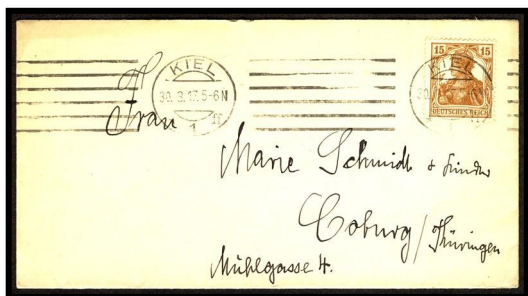 KIEL
30.3.17.5-6N
1
15 15
KIEL
DEUTSCHES REICH
Frau
Marie Schmidt &
Coburg/Thüringen
Mühlgasse 4.